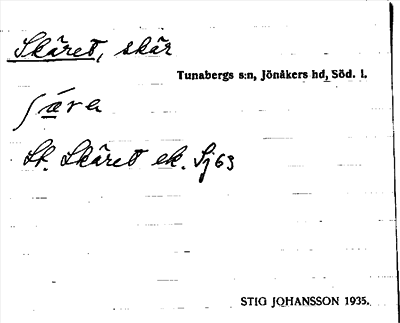 Skäret, skär
Tunabergs s:n, Jönåkers hd, Söd. l.
St. Skäret ek. Sj63
STIG JOHANSSON 1935.